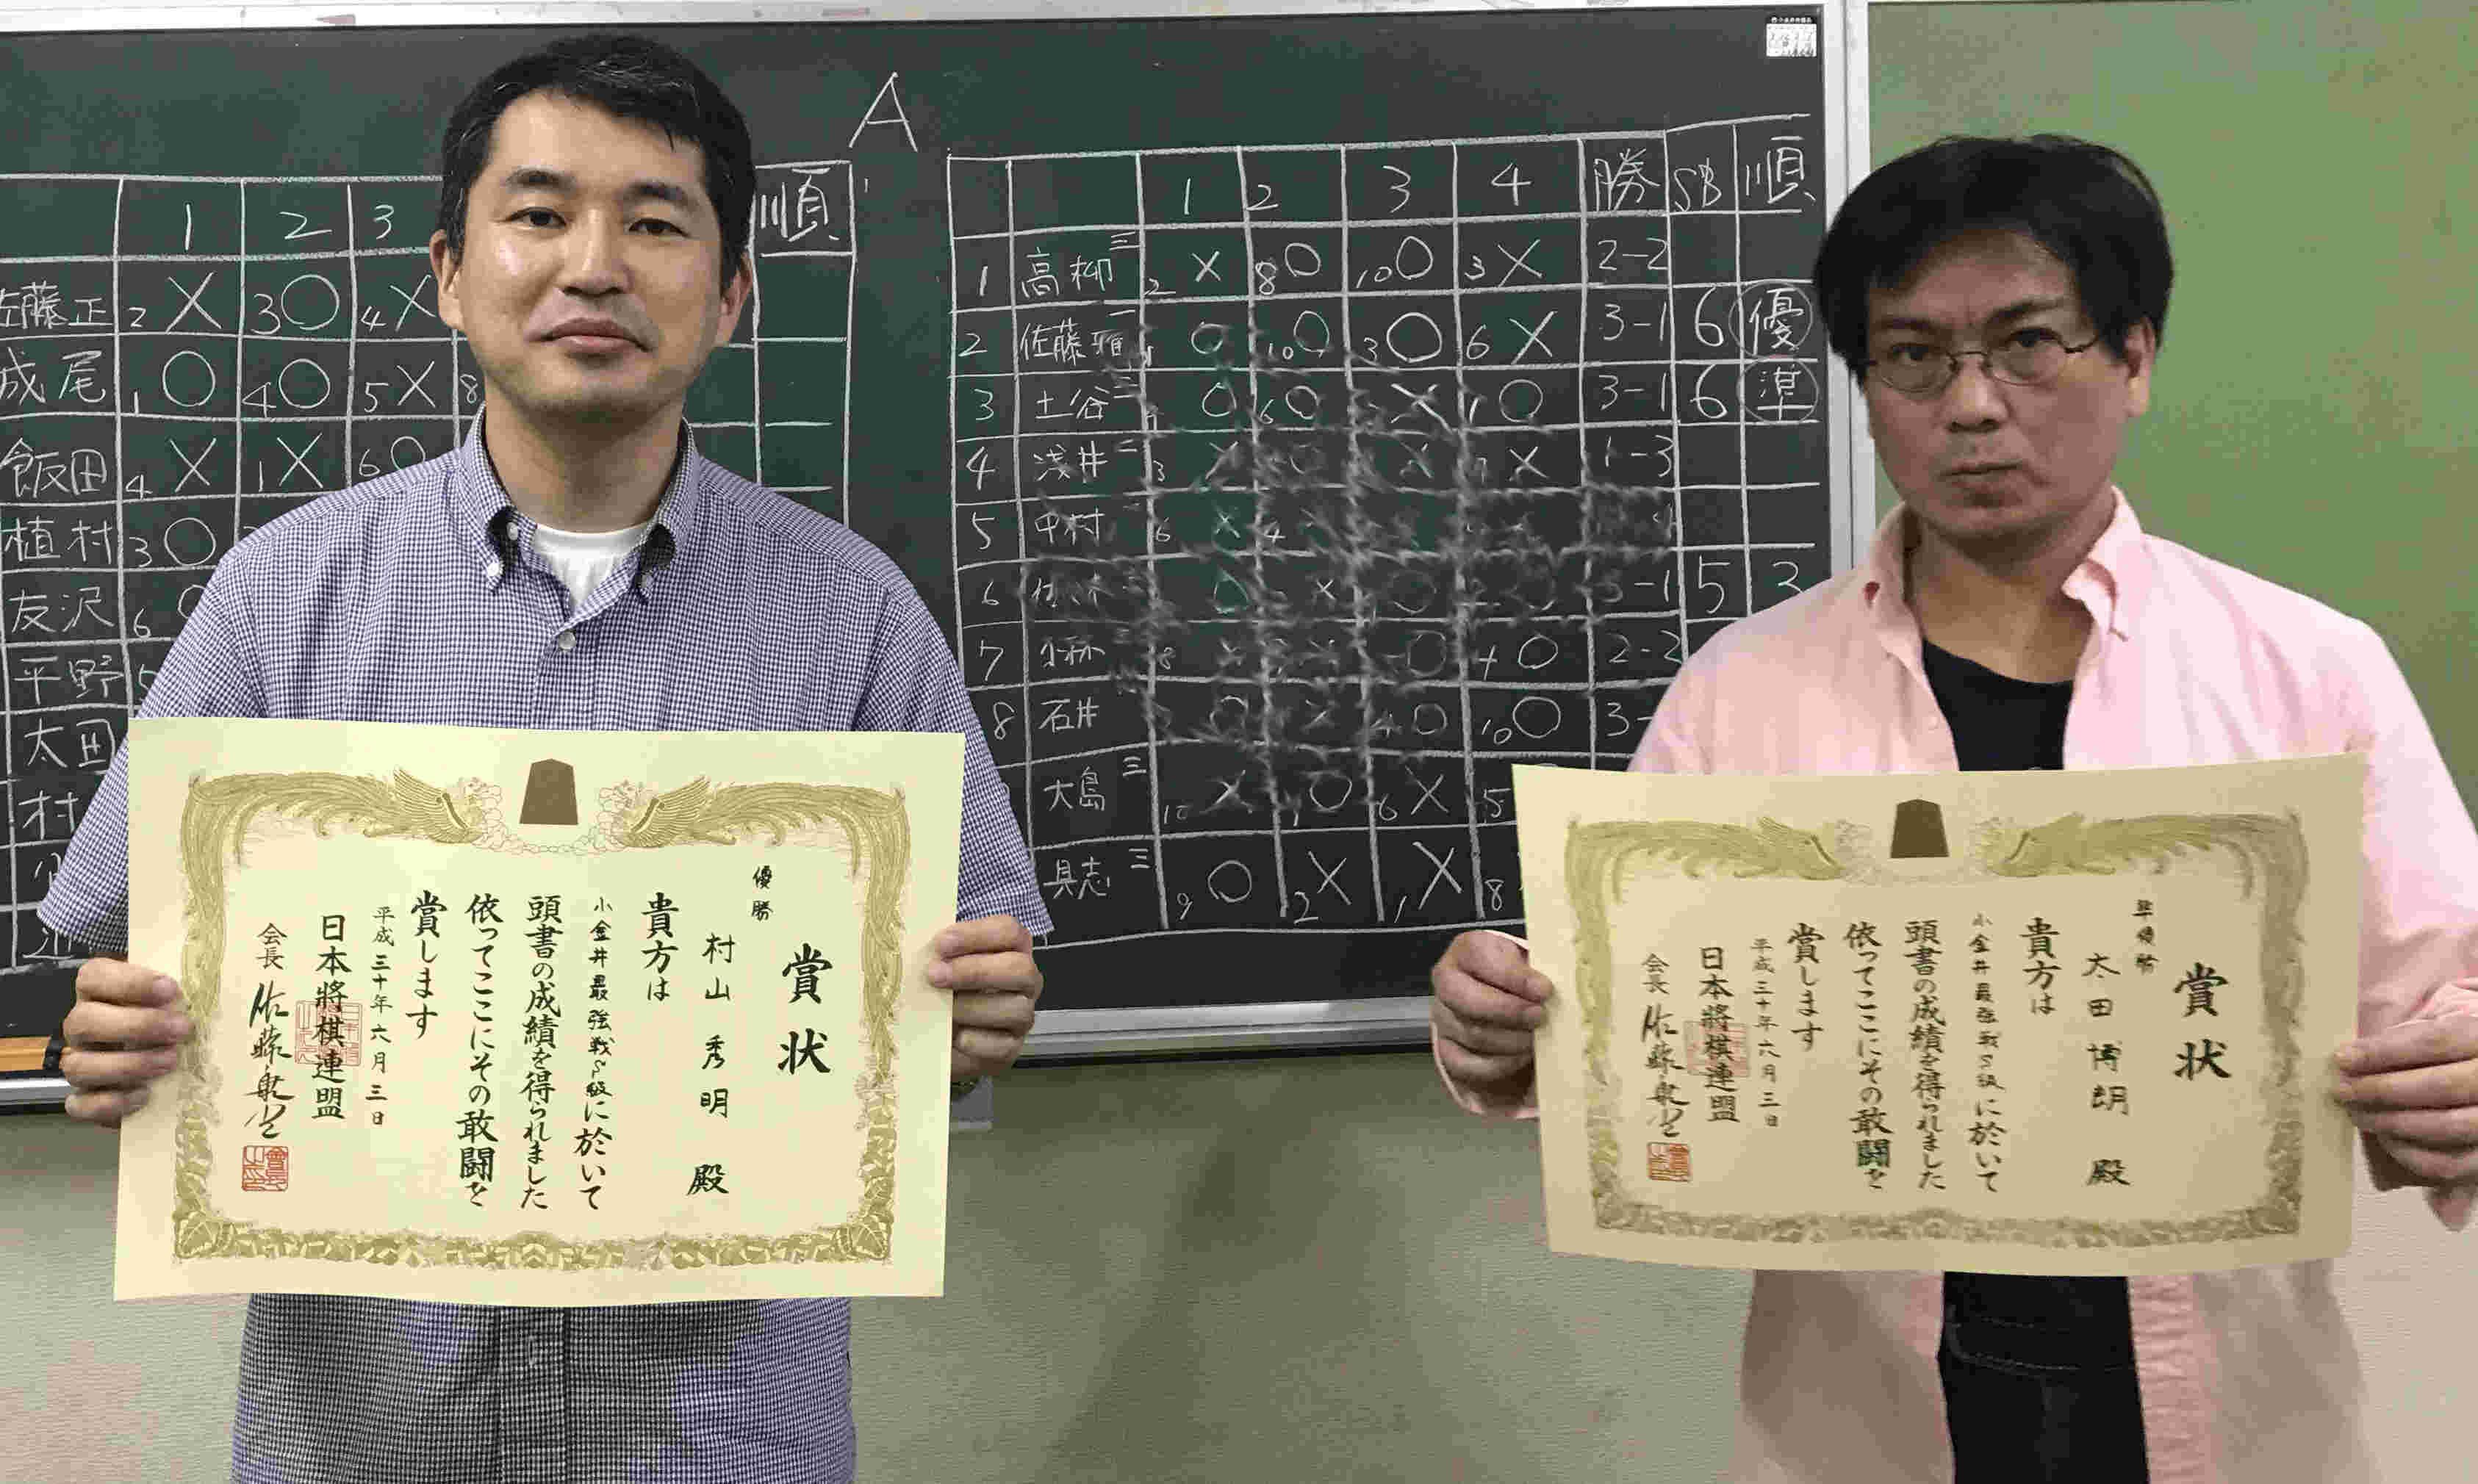 A
1 2 3 順
佐藤正 2 X 3 ○ 4 X
成尾 1 ○ 4 ○ 5 X 8
飯田 4 X 1 X 6 ○
植村 3 ○
友沢 6
平野 5
太田
村
1 2 3 4 勝 SB 順
1 高柳 三 2 X 8 ○ 10 ○ 3 X 2-2
2 佐藤雅 ○ 10 ○ 3 ○ 6 X 3-1 6 優
3 土谷 三 ○ 6 ○ X 1 ○ 3-1 6 準
4 浅井 二 3 X X 1-3
5 中村 6 X 4
6 ○ X ○ ○ 3-1 5 3
7 小林 8 ○ 4 ○ 2-2
8 石井 ○ X 4 ○ 10 ○ 3-
大島 三 10 X ○ 6 X 5
具志 三 9 ○ 2 X 1 X 8
賞状
優勝
村山秀明 殿
貴方は
小金井最強戦S級に於いて
頭書の成績を得られました
依ってここにその敢闘を
賞します
平成三十年六月三日
日本將棋連盟
会長 佐藤康光
賞状
準優勝
太田博朗 殿
貴方は
小金井最強戦S級に於いて
頭書の成績を得られました
依ってここにその敢闘を
賞します
平成三十年六月三日
日本將棋連盟
会長 佐藤康光